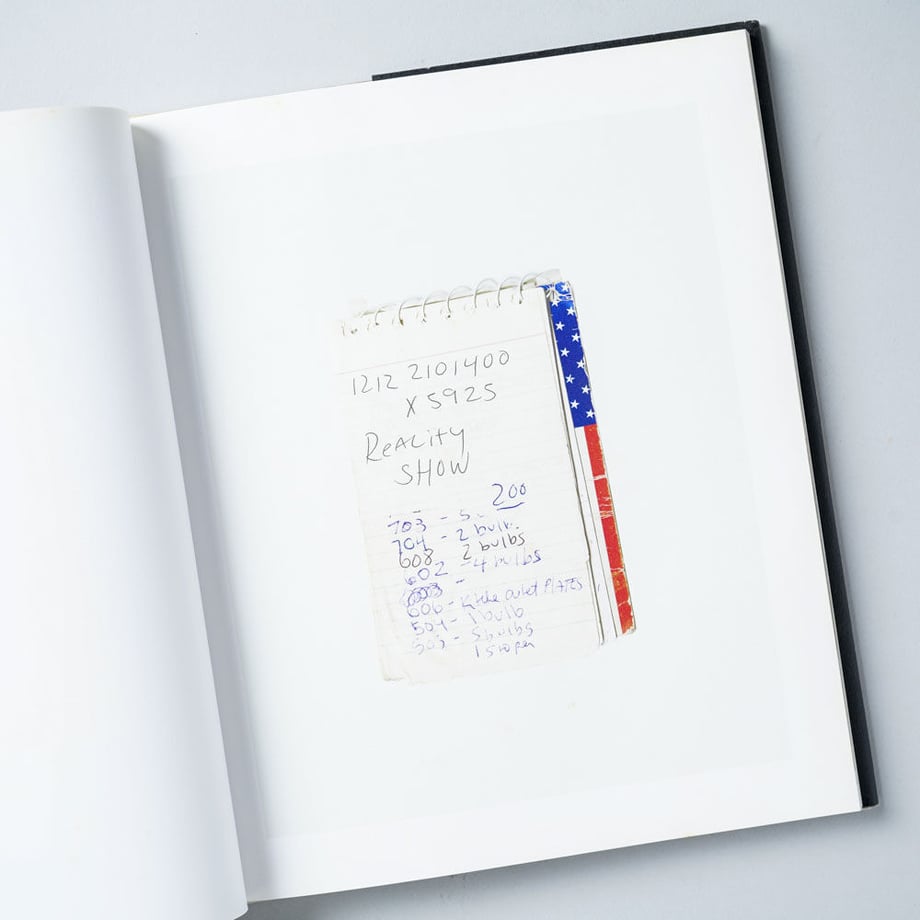 1212 2101400
X 5925
REALITY
SHOW
200
703 - 5
704 - 2 bulb
608 2 bulbs
602 - 4 bulbs
606 - outlet PLATES
504 - 1 bulb
503 - 5 bulbs
1